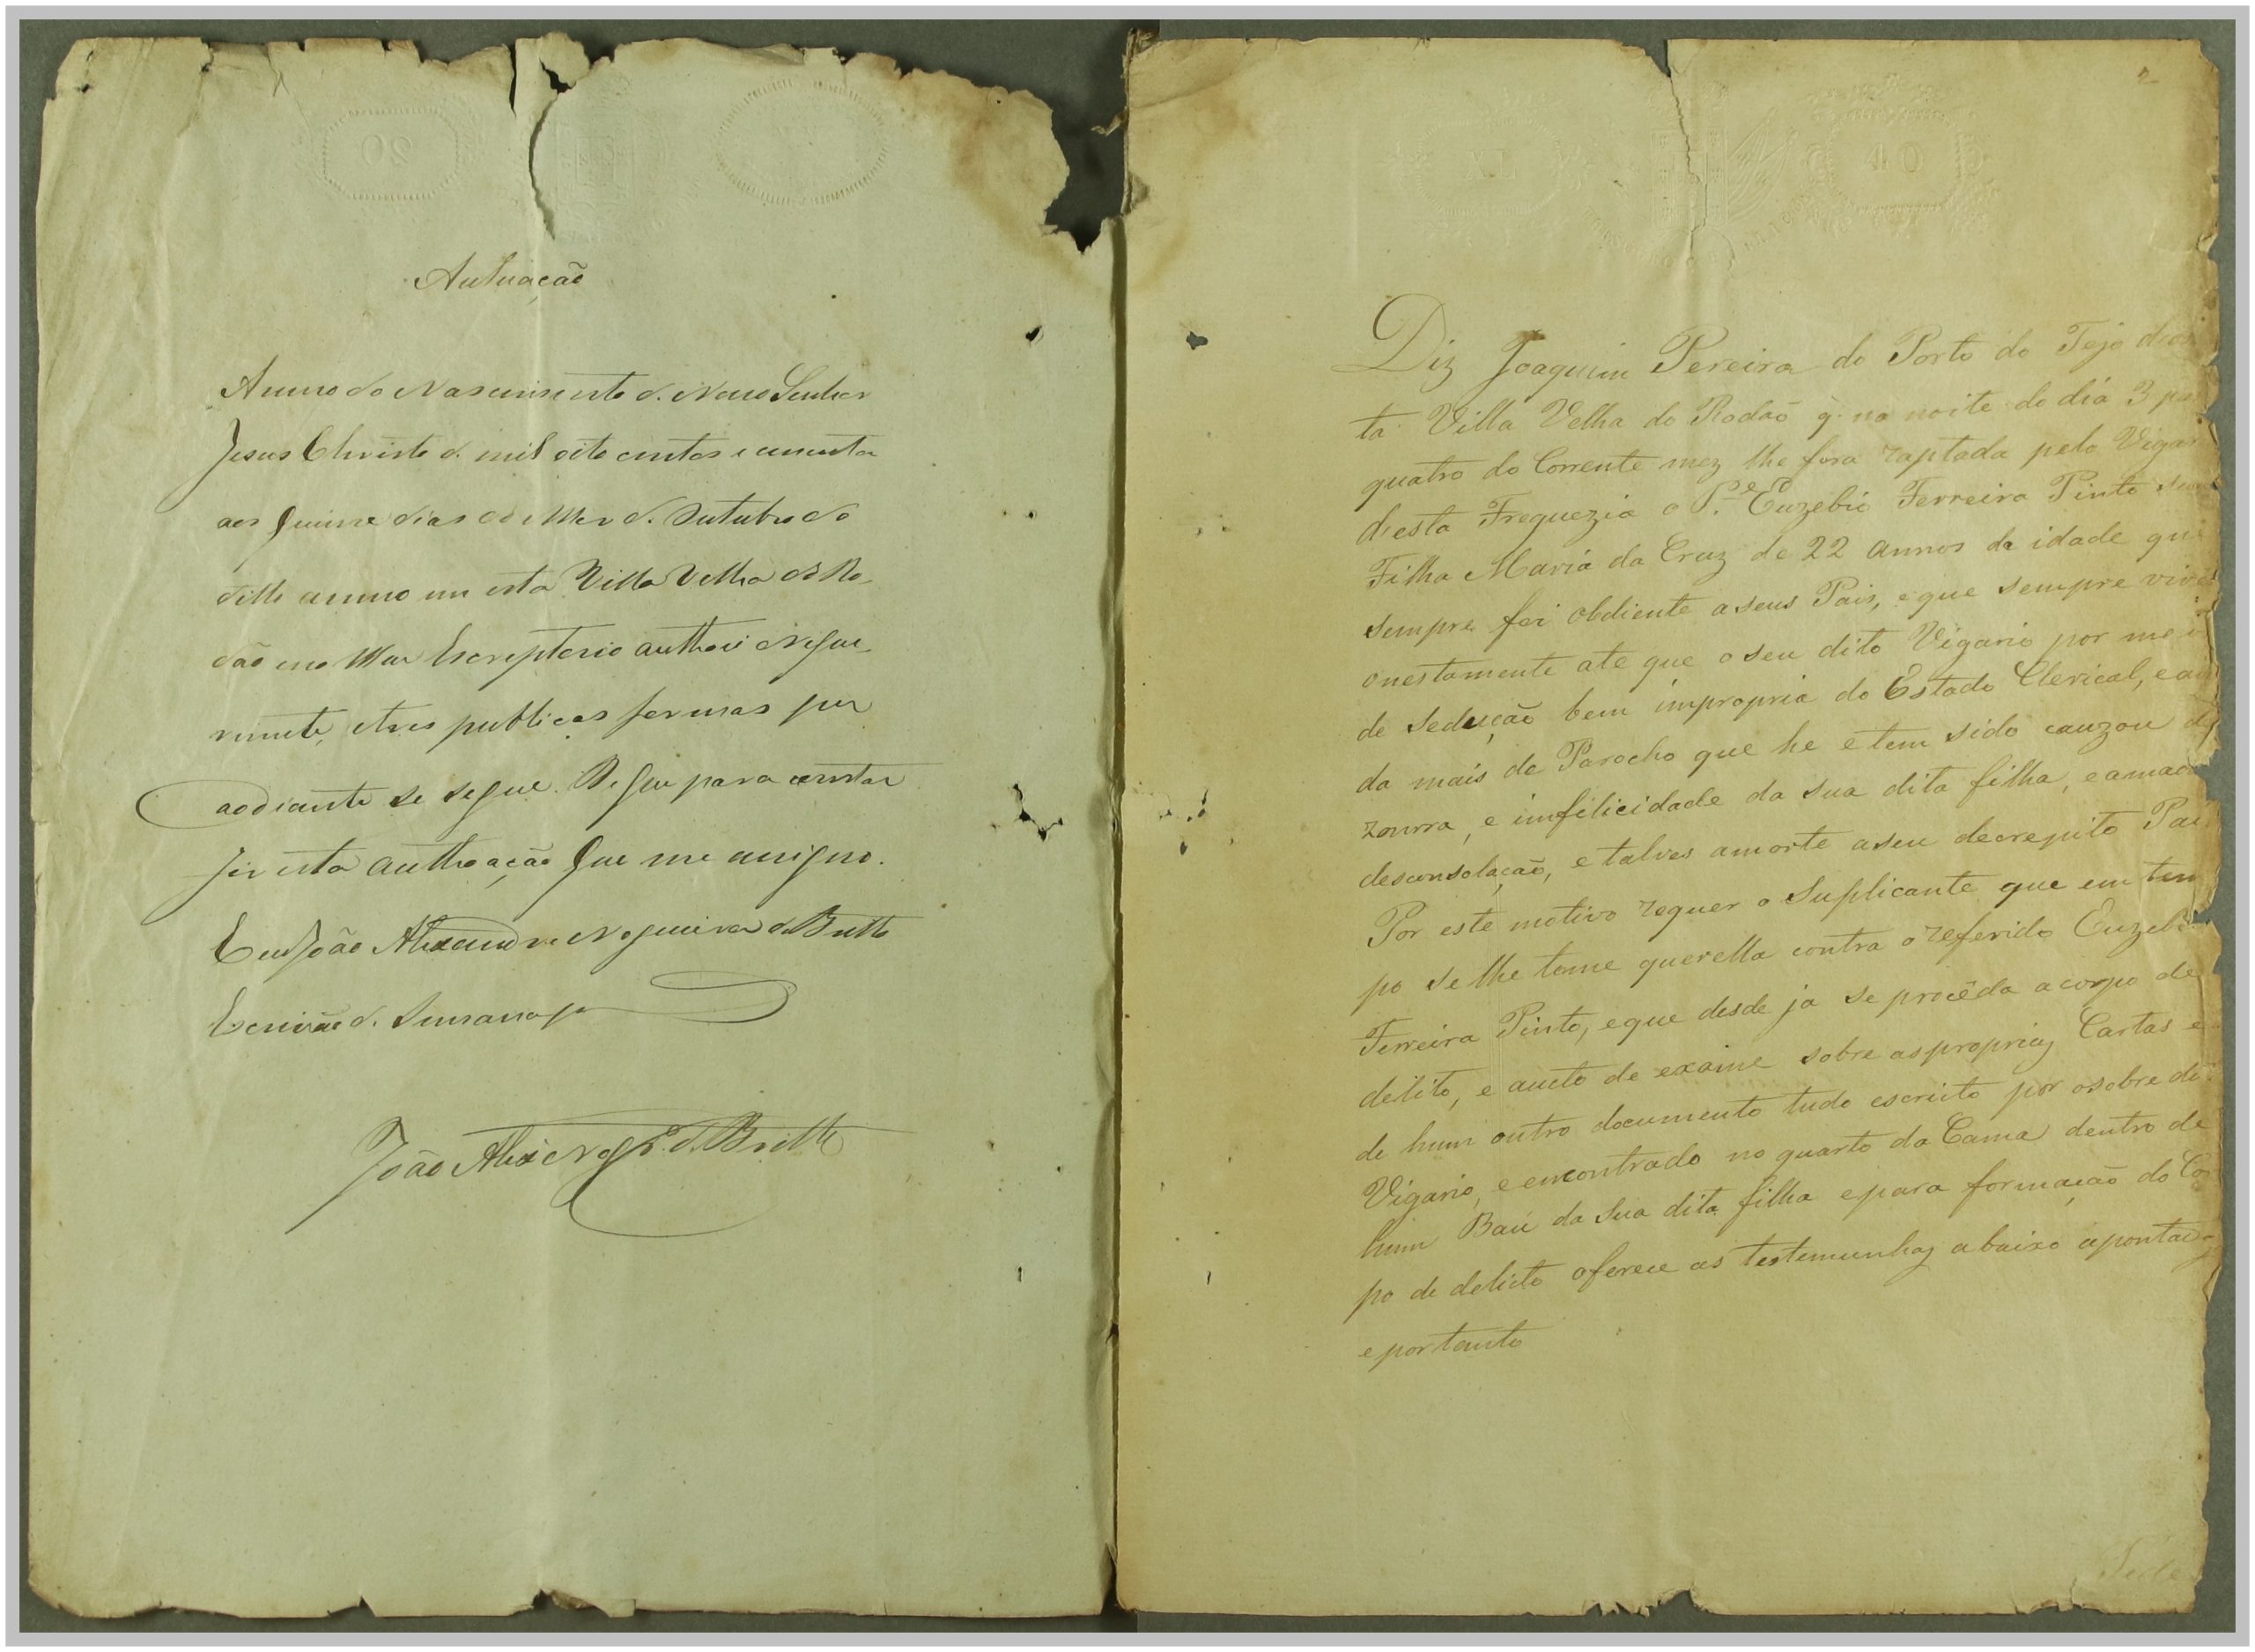 Autuação
Anno do Nascimento d. Nosso Senhor
Jesus Christo d. mil oito centos e cincoenta
aos quinze dias do Mez d. Outubro do
ditto anno em esta Villa Velha de Ro-
dão e no Meu Escreptorio authoei o reque-
rimento, e tres publicas formas que
aodiante se segue. De que para constar
fiz esta authoação que me assigno.
Eu João Alexandre Nogueira d. Britto
Escrivão d.
João Alexe Nogr.a d. Britto
2
40
20
Diz Joaquim Pereira do Porto do Tejo des
ta Villa Velha do Rodaõ q. na noite do dia 3 pa
quatro do Corrente mez lhe fora raptada pelo Vigar
desta Freguezia o P.e Euzebio Ferreira Pinto sua
Filha Maria da Cruz de 22 annos de idade que
sempre foi obdiente a seus Pais, e que sempre vive
onestamente ate que o seu dito Vigario por mei
de sedução bem impropria do Estado Clerical, e ain
da mais de Parocho que he e tem sido cauzou a
zonrra, e imfilicidade da sua dita filha, e amar
desconsolação, e talves amorte aseu decrepito Pai.
Por este motivo requer o Suplicante que em tem
po se lhe tome querella contra o referido Euzeb
Ferreira Pinto, e que desde ja se procêda a corpo de
delito, e aucto de exame sobre as proprias Cartas e
de hum outro documento tudo escrito por osobre di
Vigario, e encontrado no quarto da Cama dentro de
hum Baú da sua dita filha e para formação do Cor
po de delicto oferece as testemunhas abaixo apontad
e portanto
Péde